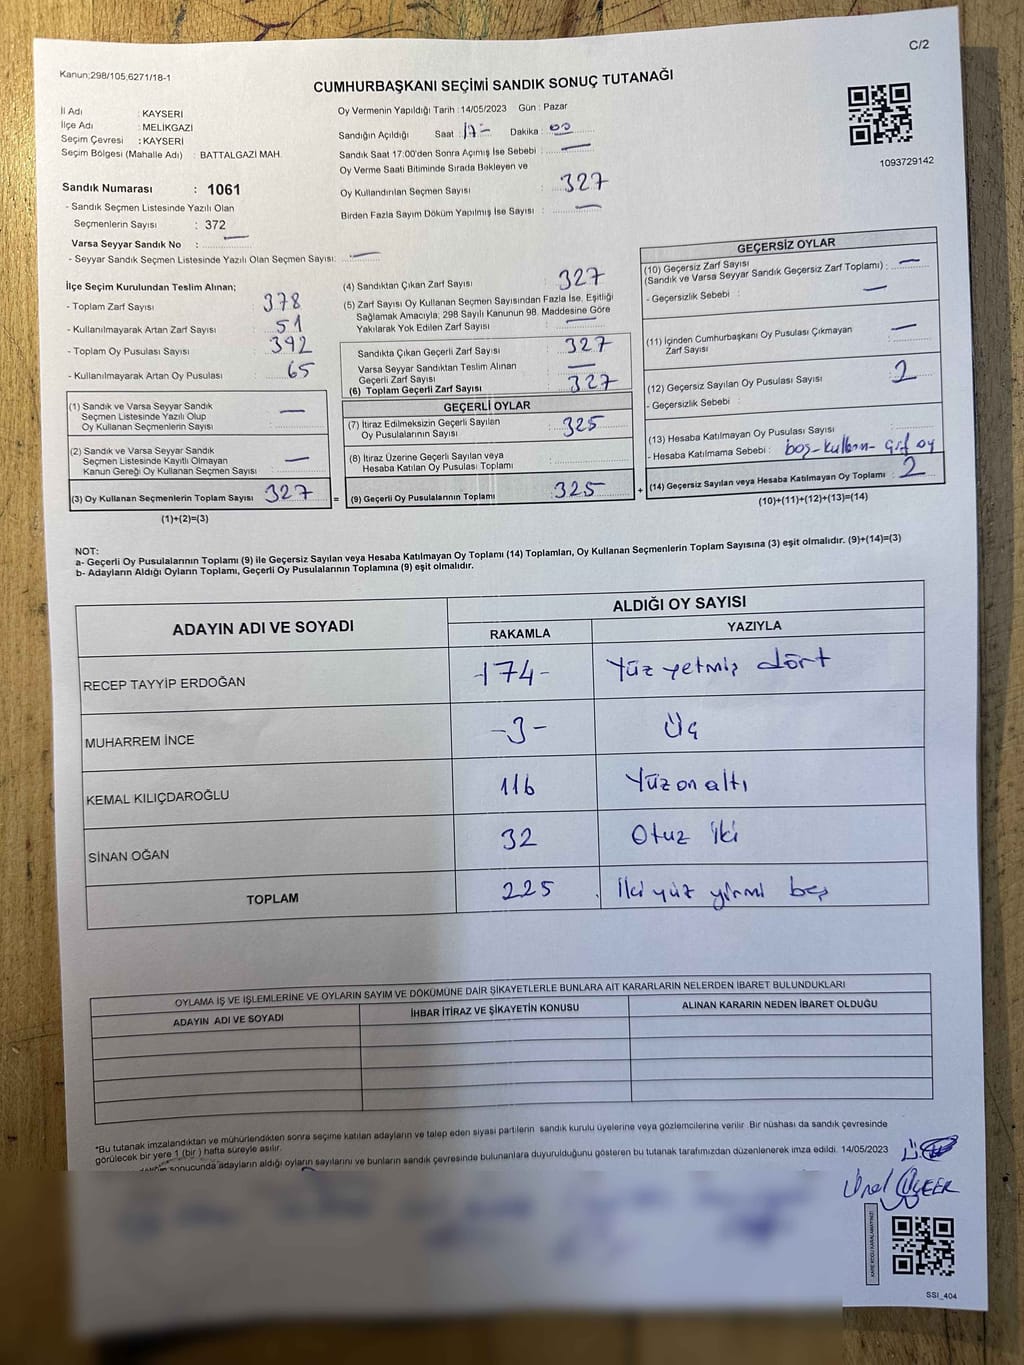 C/2
Kanun;298/105,6271/18-1
CUMHURBAŞKANI SEÇİMİ SANDIK SONUÇ TUTANAĞI
İl Adı : KAYSERİ
İlçe Adı : MELİKGAZİ
Seçim Çevresi : KAYSERİ
Seçim Bölgesi (Mahalle Adı) : BATTALGAZİ MAH.
Sandık Numarası : 1061
- Sandık Seçmen Listesinde Yazılı Olan
Seçmenlerin Sayısı : 372
Varsa Seyyar Sandık No : —
- Seyyar Sandık Seçmen Listesinde Yazılı Olan Seçmen Sayısı: —
Oy Vermenin Yapıldığı Tarih : 14/05/2023 Gün : Pazar
Sandığın Açıldığı Saat : 17- Dakika : 00
Sandık Saat 17:00'den Sonra Açımış İse Sebebi : —
Oy Verme Saati Bitiminde Sırada Bekleyen ve
Oy Kullandırılan Seçmen Sayısı : 327
Birden Fazla Sayım Döküm Yapılmış İse Sayısı : —
1093729142
İlçe Seçim Kurulundan Teslim Alınan;
- Toplam Zarf Sayısı : 378
- Kullanılmayarak Artan Zarf Sayısı : 51
- Toplam Oy Pusulası Sayısı : 392
- Kullanılmayarak Artan Oy Pusulası : 65
(1) Sandık ve Varsa Seyyar Sandık
Seçmen Listesinde Yazılı Olup
Oy Kullanan Seçmenlerin Sayısı : —
(2) Sandık ve Varsa Seyyar Sandık
Seçmen Listesinde Kayıtlı Olmayan
Kanun Gereği Oy Kullanan Seçmen Sayısı : —
(3) Oy Kullanan Seçmenlerin Toplam Sayısı 327 =
(1)+(2)=(3)
(4) Sandıktan Çıkan Zarf Sayısı : 327
(5) Zarf Sayısı Oy Kullanan Seçmen Sayısından Fazla İse, Eşitliği
Sağlamak Amacıyla; 298 Sayılı Kanunun 98. Maddesine Göre
Yakılarak Yok Edilen Zarf Sayısı : —
Sandıkta Çıkan Geçerli Zarf Sayısı : 327
Varsa Seyyar Sandıktan Teslim Alınan
Geçerli Zarf Sayısı : —
(6) Toplam Geçerli Zarf Sayısı : 327
GEÇERLİ OYLAR
(7) İtiraz Edilmeksizin Geçerli Sayılan
Oy Pusulalarının Sayısı : 325
(8) İtiraz Üzerine Geçerli Sayılan veya
Hesaba Katılan Oy Pusulası Toplamı :
(9) Geçerli Oy Pusulalarının Toplamı : 325 +
GEÇERSİZ OYLAR
(10) Geçersiz Zarf Sayısı
(Sandık ve Varsa Seyyar Sandık Geçersiz Zarf Toplamı) : —
- Geçersizlik Sebebi : —
(11) İçinden Cumhurbaşkanı Oy Pusulası Çıkmayan
Zarf Sayısı : —
(12) Geçersiz Sayılan Oy Pusulası Sayısı : 2
- Geçersizlik Sebebi :
(13) Hesaba Katılmayan Oy Pusulası Sayısı :
- Hesaba Katılmama Sebebi : boş-kullanı- çift oy
(14) Geçersiz Sayılan veya Hesaba Katılmayan Oy Toplamı : 2
(10)+(11)+(12)+(13)=(14)
NOT:
a- Geçerli Oy Pusulalarının Toplamı (9) ile Geçersiz Sayılan veya Hesaba Katılmayan Oy Toplamı (14) Toplamları, Oy Kullanan Seçmenlerin Toplam Sayısına (3) eşit olmalıdır. (9)+(14)=(3)
b- Adayların Aldığı Oyların Toplamı, Geçerli Oy Pusulalarının Toplamına (9) eşit olmalıdır.
ADAYIN ADI VE SOYADI ALDIĞI OY SAYISI
RAKAMLA YAZIYLA
RECEP TAYYİP ERDOĞAN -174- Yüz yetmiş dört
MUHARREM İNCE -3- Üç
KEMAL KILIÇDAROĞLU 116 Yüz on altı
SİNAN OĞAN 32 Otuz iki
TOPLAM 225 İki yüz yirmi beş
OYLAMA İŞ VE İŞLEMLERİNE VE OYLARIN SAYIM VE DÖKÜMÜNE DAİR ŞİKAYETLERLE BUNLARA AİT KARARLARIN NELERDEN İBARET BULUNDUKLARI
ADAYIN ADI VE SOYADI İHBAR İTİRAZ VE ŞİKAYETİN KONUSU ALINAN KARARIN NEDEN İBARET OLDUĞU
*Bu tutanak imzalandıktan ve mühürlendikten sonra seçime katılan adayların ve talep eden siyasi partilerin sandık kurulu üyelerine veya gözlemcilerine verilir. Bir nüshası da sandık çevresinde
görülecek bir yere 1 (bir ) hafta süreyle asılır.
sonucunda adayların aldığı oyların sayılarını ve bunların sandık çevresinde bulunanlara duyurulduğunu gösteren bu tutanak tarafımızdan düzenlenerek imza edildi. 14/05/2023
SSI_404